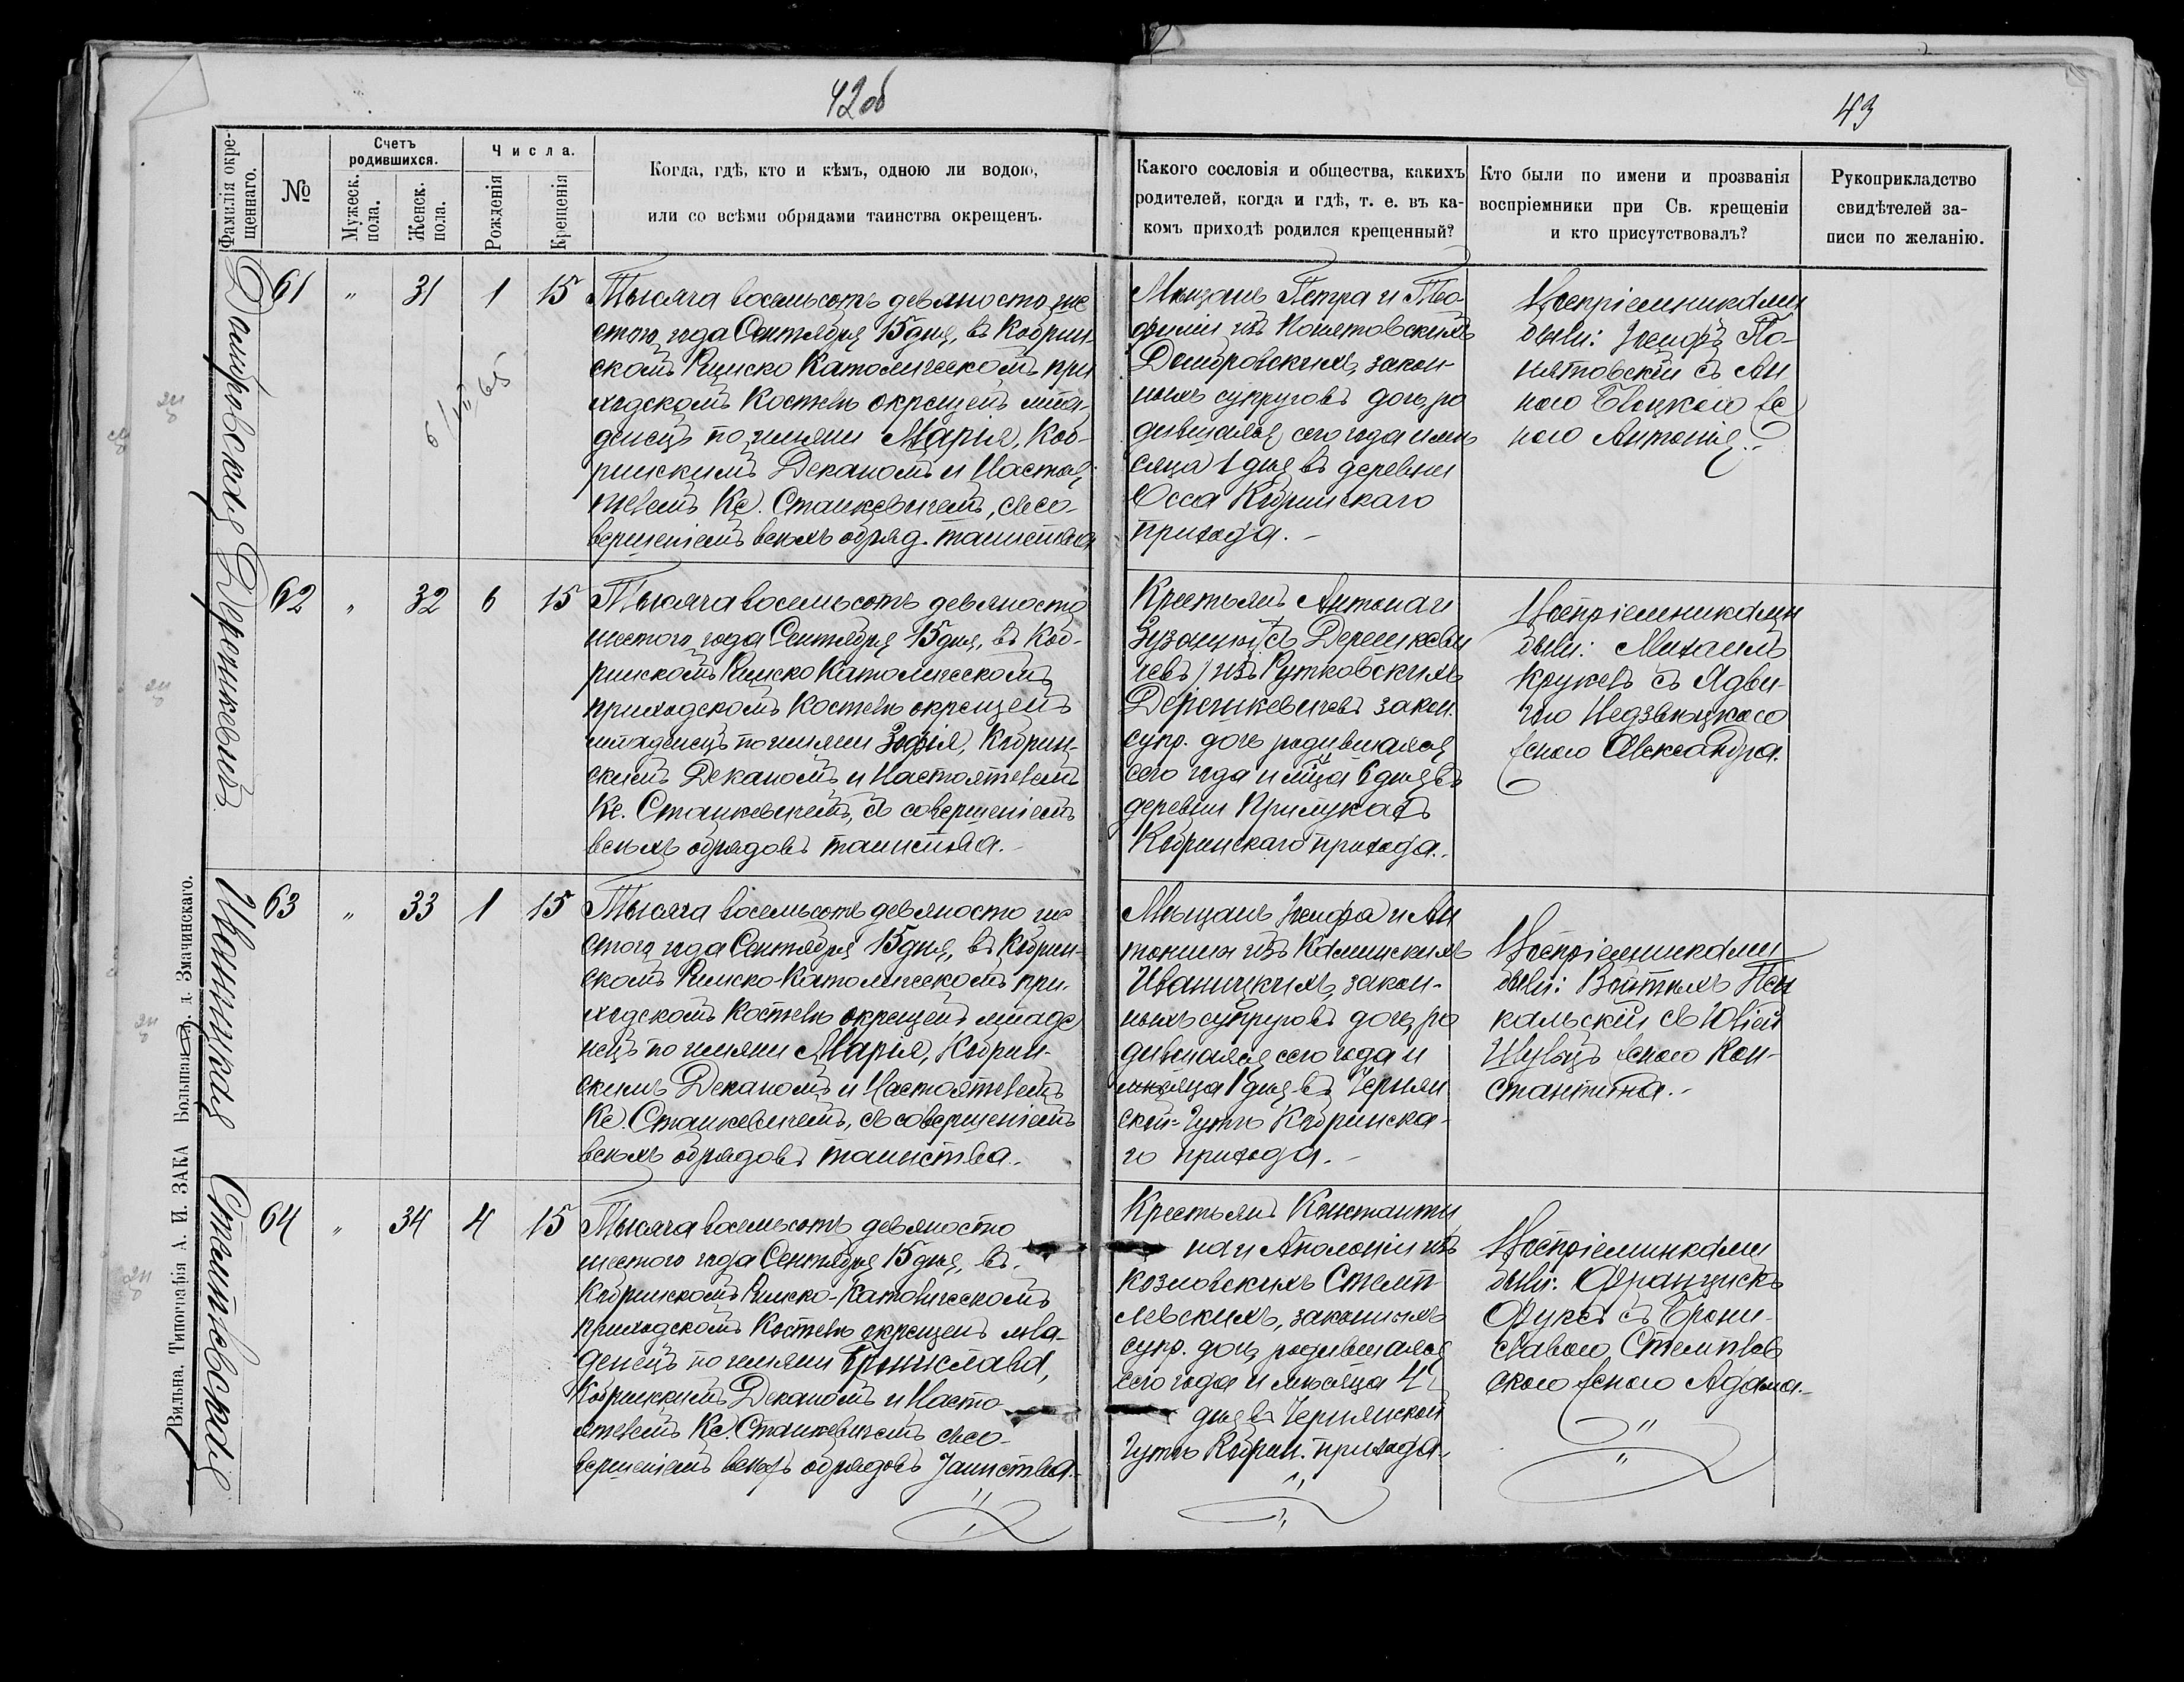 42об
43
Фамилія окре-
щеннаго.
№
Счетъ
родившихся.
Мужеск.
пола.
Женск.
пола.
Числа.
Рожденія
Крещенія
Когда, гдѣ, кто и кѣмъ, одною ли водою,
или со всѣми обрядами таинства окрещенъ.
Какого сословія и общества, какихъ
родителей, когда и гдѣ, т. е. въ ка-
комъ приходѣ родился крещенный?
Кто были по имени и прозванія
воспріемники при Св. крещеніи
и кто присутствовалъ?
Рукоприкладство
свидѣтелей за-
писи по желанію.
Домбровская
61 " 31 1 15
Тысяча восемьсотъ девяносто ше
стого года Сентября 15 дня, въ Кобрин-
скомъ Римско Католическомъ при
ходскомъ Костелѣ окрещенъ мла-
денецъ по имени Марія, Коб-
ринскимъ Деканомъ и Настоя-
телемъ Кс. Станкевичемъ, съ со-
вершеніемъ всѣхъ обряд. таинства
Мѣщанъ Петра и Тео-
филіи изъ Понятовскихъ
Домбровскихъ, закон-
ныхъ супруговъ дочь, ро
дившаяся сего года и мѣ
сяца 1 дня въ деревни
Осса Кобринскаго
прихода.-
Воспріемниками
были: Іосифъ По-
нятовскій съ Ан
ною
ною Антонія.-
62 " 32 6 15
Тысяча восемьсотъ девяносто
шестого года Сентября 15 дня, въ Коб-
ринскомъ Римско Католическомъ
приходскомъ Костелѣ окрещенъ
младенецъ по имени Зофія, Кобрин-
скимъ Деканомъ и Настоятелемъ
Кс. Станкевичемъ, съ совершеніемъ
всѣхъ обрядовъ таинства.-
Крестьянъ Антона и
чевъ) изъ Рутковскихъ
закон.
супр. дочь родившаяся
сего года и м-ца 6 дня въ
деревни Прилукахъ
Кобринскаго прихода.
Воспріемниками
были: Михаилъ
съ Ядви-
гою
женою Александра.
Иваницкая
63 " 33 1 15
Тысяча восемьсотъ девяносто ше
стого года Сентября 15 дня, въ Кобрин-
скомъ Римско-Католическомъ при-
ходскомъ Костелѣ окрещенъ младе
нецъ по имени Марія, Кобрин-
скимъ Деканомъ и Настоятелемъ
Кс. Станкевичемъ, съ совершеніемъ
всѣхъ обрядовъ таинства.
Мѣщанъ Іосифа и Ан
тонины изъ Каминскихъ
Иваницкихъ, закон-
ныхъ супруговъ дочь, ро
дившаяся сего года и
мѣсяца 1 дня въ Черня
ской-Гутѣ Кобринска-
го прихода.-
Воспріемниками
были: Войтѣхъ Пен
кальскій съ Юліей
женою Кон-
стантина.-
Стемплевская
64 " 34 4 15
Тысяча восемьсотъ девяносто
шестого года Сентября 15 дня, въ
Кобринскомъ Римско-Католическомъ
приходскомъ Костелѣ окрещенъ мла-
денецъ по имени Брониславa,
Кобринскимъ Деканомъ и Насто
ятелемъ Кс. Станкевичемъ съ со-
вершеніемъ всѣхъ обрядовъ Таинства.
Крестьянъ Константи
на и Аполоніи изъ
Козловскихъ Стемп
левскихъ, законныхъ
супр. дочь, родившаяся
сего года и мѣсяца 4
дня въ Чернянской
Гутѣ Кобрин. прихода.
Воспріемниками
были: Францискъ
Фуксъ съ Брони-
славою Стемплев
скою женою Адама.-
Вильна. Типографія А. И. ЗАКА Большая д. Змачинскаго.